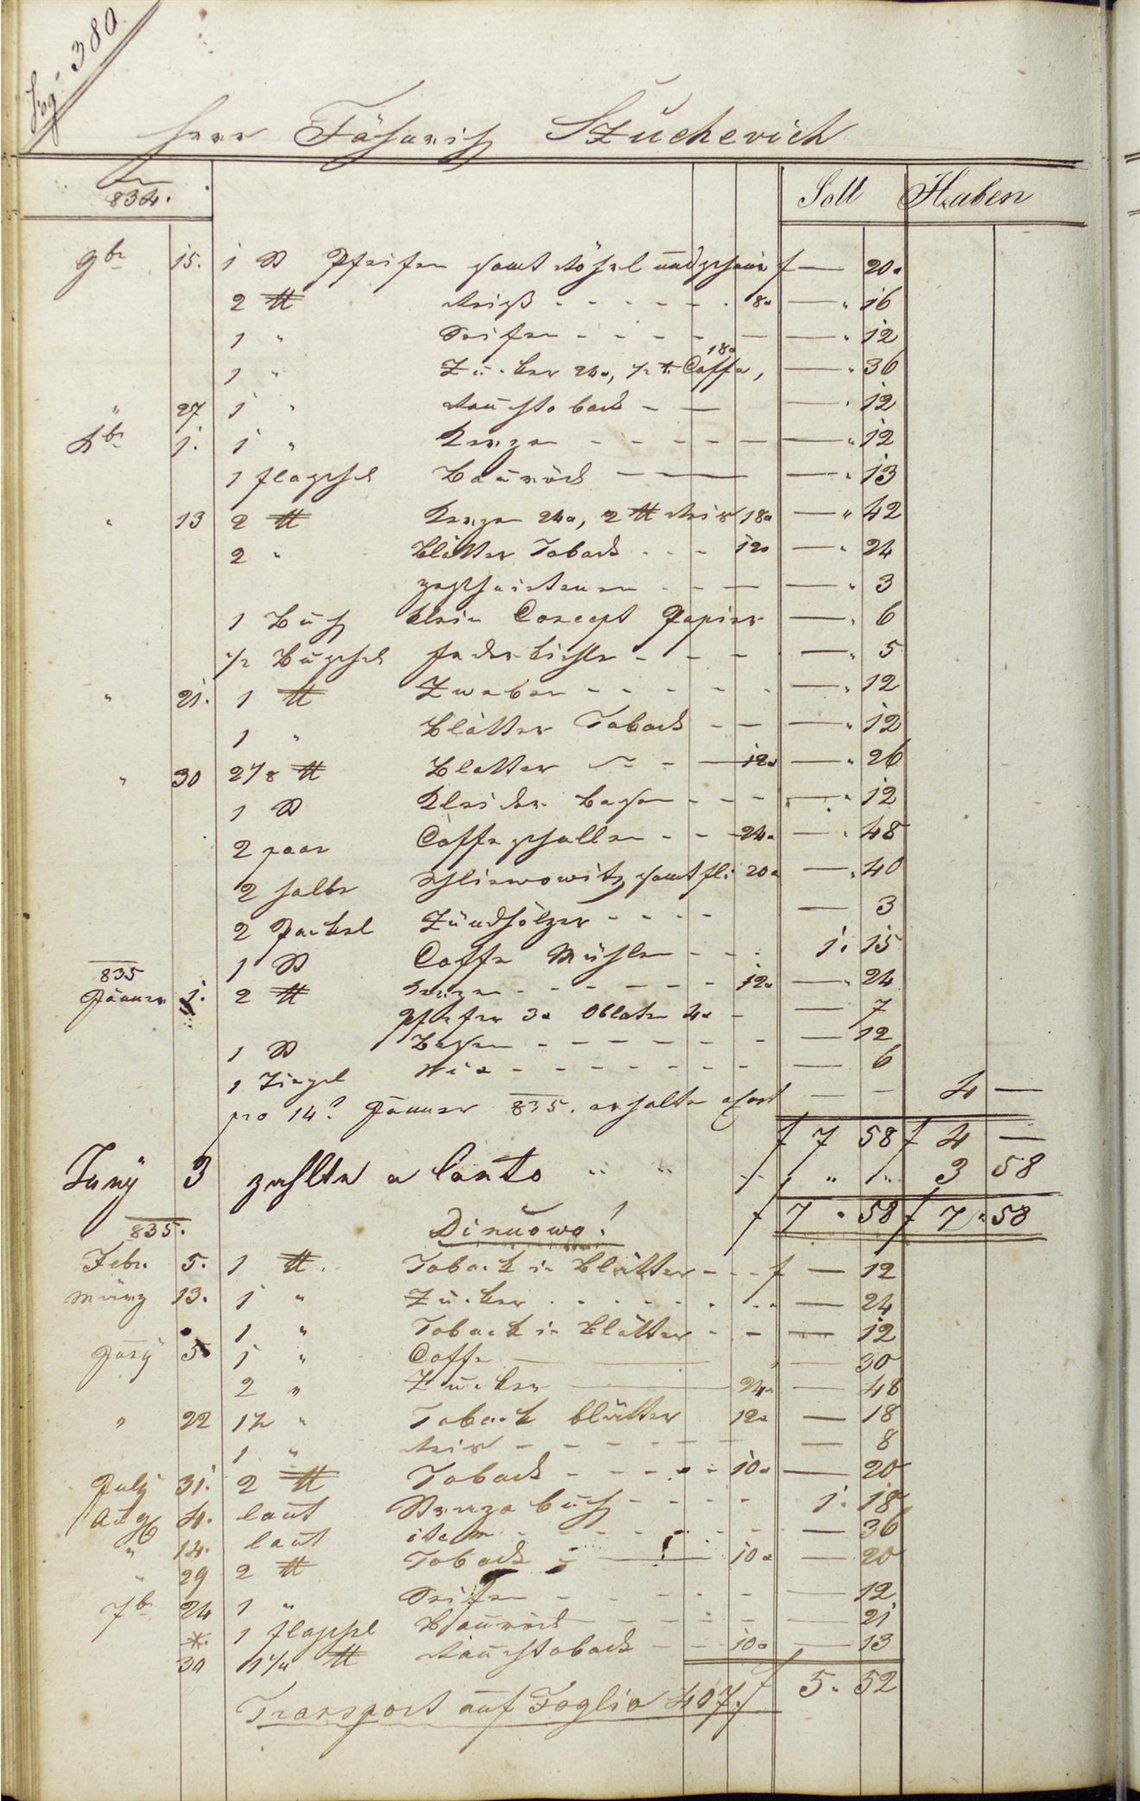 Fog: 380.
Herr Fähnrich Szuchevich
834. Soll Haben
9br 15. 1 St Pfeifen samt Röhrl und f — 20
2 ℔ Reiß - - - 8 — " 16
1 " Seifen - - - — " 12
1 " Zucker 24, ½ ℔ Caffe, 18 — " 36
" 27 1 " Rauchtoback - — — " 12
Xbr 1. 1 " Kerzen - - - — " 12
1 flaschel — " 13
" 13 2 ℔ Kerzen 24, 2 ℔ Reis 18 — " 42
2 " Blätter Toback - - - 12 — " 24
- - - — " 3
1 Buch klein Concept Papier — " 6
½ Büschel Federkiehle - - - — " 5
" 21. 1 ℔ Zweben - - - — " 12
1 " Blätter Toback - - — " 12
" 30 2 1/8 ℔ Blatter - — 12 — " 26
1 St Kleider Besen - - - — " 12
2 paar Caffeschallen - - 24 — " 48
2 halbe Schliwowitz samt fl: 20 — " 40
2 Packel Zündhölzer - - - — 3
1 St Caffe Mühlen - - - 1. 15
835
Jänner 1. 2 ℔ Kerzen - - - 12 — " 24
Pfefer 3 Oblaten 4 - — 7
1 St Besen - - - — 12
1 - - - — 6
pro 14 Jänner 835. erhalte — — 4 —
f 7 58 f 4 —
Juny 3 zahlte a Conto " " " " 3 58
f 7 " 58 f 7 " 58
835. Dinuowo!
Febr. 5. 1 ℔. Toback in Blätter - - f — 12
März 13. 1 " Zucker - - - — 24
1 " Toback in Blätter - - — 12
Juny 5 1 " Caffe — — 30
2 " Zucker — 24 — 48
" 22 1½ " Toback blätter 12 — 18
1 " Reis - - - — 8
July 31. 2 ℔ Toback - - - 10 — 20
Aug 4. laut buch - - - 1. 18
" 14. laut item - - - — 36
" 29 2 ℔ Toback — 10 — 20
7br 24 1 " Seifen - - - — 12
1 flaschel - - - — 21
30 1¼ ℔ Rauchtoback - - 10 — 13
f 5. 52
Transport auf Foglio 407.